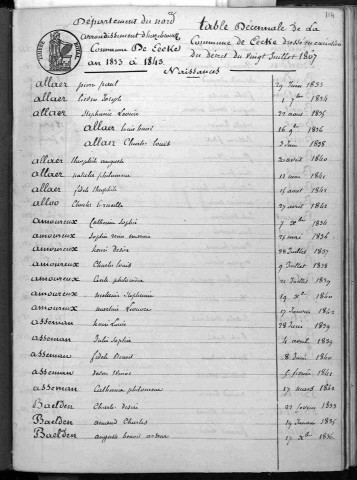 Département du nord
arrondissement d'hazebrouck
Commune De Eecke
an 1833 à 1843
table Décennale de La
Commune de Eecke dressée en exécution
du décret du Vingt Juillet 1807
Naissances
allaer pierre paul 29 Juin 1833
allaer Joseph 1 7bre 1834
allaer Stephanie Louise 22 aout 1835
allaer louis benoit 26 9bre 1836
allaer Charles Louis 3 Juin 1838
allaer theophile auguste 20 avril 1840
allaer natalie philomene 12 mai 1841
allaer fidele theophile 15 aout 1841
alloo Charles Corneille 27 avril 1841
amoureux Catherine Sophie 7 Xbre 1834
amoureux Sophie 25 mai 1836
amoureux henri desiré 28 Juillet 1837
amoureux Charles Louis 9 Juillet 1838
amoureux Cecile philomène 21 Juillet 1839
amoureux Stephanie 19 Xbre 1840
amoureux Leonore 17 Janvier 1842
asseman henri Louis 28 Juin 1839
asseman Julie Sophie 4 aout 1839
asseman fidele Benoit 8 Juin 1840
asseman 5 fevrier 1841
asseman Catherine philomene 17 mars 1842
Baelden Charles desiré 21 fevrier 1833
Baelden amand Charles 19 Janvier 1835
Baelden auguste benoit 17 Xbre 1836